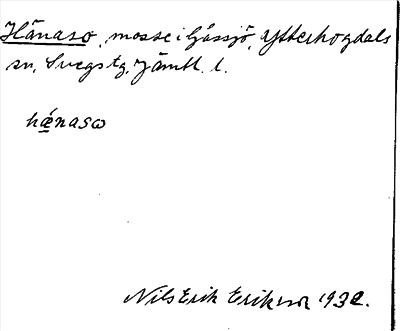 Hånaso, mosse i Gåssjö, Ytterhogdals
sn, Svegs tg, Jämtl. l.
hǽnasω
Nils Erik Erikson 1932.